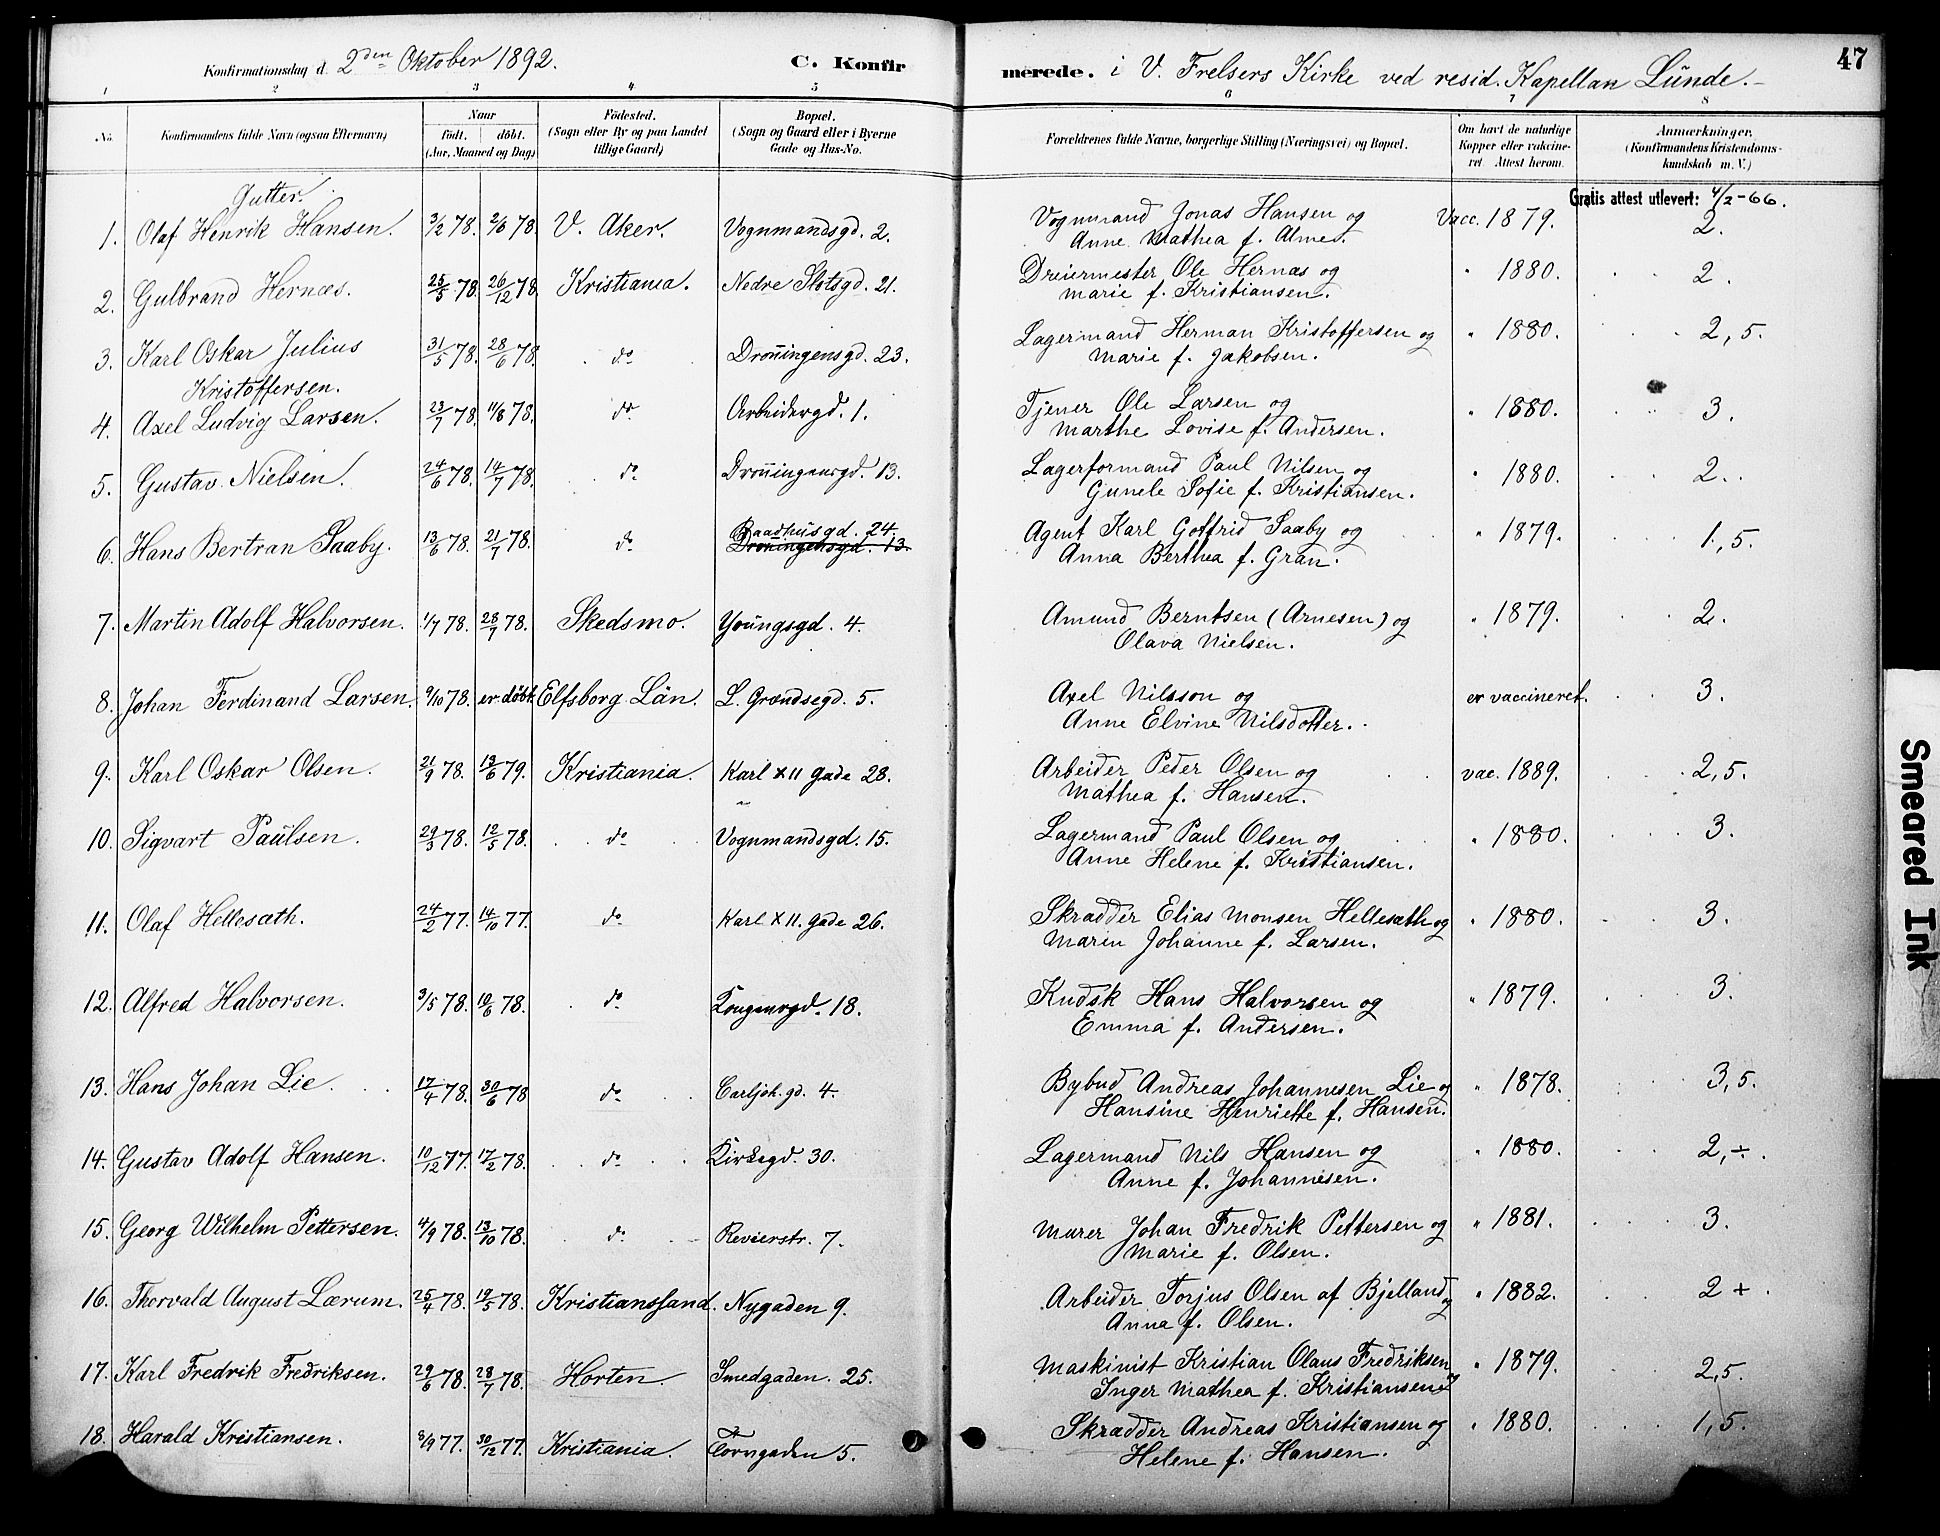 47
Konfirmationsdag d. 2den Oktober 1892. C. Konfirmerede. i V. Frelsers Kirke ved resid. Kapellan Lunde.
1 2 3 4 5 6 7 8
No. Konfirmandens fulde Navn (ogsaa Efternavn) Naar födt. döbt. (Aar, Maaned og Dag) Födested. (Sogn eller By og paa Landet tillige Gaard) Bopæl. (Sogn og Gaard eller i Byerne Gade og Hus-No. Forældrenes fulde Navne, borgerlige Stilling (Næringsvei) og Bopæl. Om havt de naturlige Kopper eller vaccineret. Attest herom. Anmærkninger. (Konfirmandens Kristendomskundskab m. V.)
Gutter. Gratis attest utlevert: 4/2-66.
1. Olaf Henrik Hansen. 3/2 78. 2/6 78. V. Aker. Vognmandsgd. 2. Vognmand Jonas Hansen og Vacc. 1879. 2.
Anne Mathea f. Almed.
2. Gulbrand Hernæs. 25/5 78. 26/12 78. Kristiania. Nedre Slotsgd. 21. Dreiermester Ole Hernæs og " 1880. 2.
Marie f. Kristiansen.
3. Karl Oskar Julius 31/5 78. 28/6 78. do Dronningensgd. 23. Lagermand Herman Kristoffersen og " 1880. 2,5.
Kristoffersen. Marie f. Jakobsen.
4. Axel Ludvig Larsen. 23/7 78. 11/8 78. do Arbeidergd. 1. Tjener Ole Larsen og " 1880. 3.
Marthe Lovise f. Andersen.
5. Gustav Nielsen. 24/6 78. 14/7 78. do Dronningensgd. 13. Lagerformand Paul Nilsen og " 1880. 2.
Gunele Sofie f. Kristiansen.
6. Hans Bertran Saaby. 13/6 78. 21/7 78. do Raadhusgd. 24. Agent Karl Gotfrid Saaby og " 1879. 1,5.
Dronningensgd. 13. Anna Berthea f. Gran.
7. Martin Adolf Halvorsen. 1/7 78. 28/7 78. Skedsmo. Youngsgd. 4. Amund Berntsen (Arnesen) og " 1879. 2.
Olava Nielsen.
8. Johan Ferdinand Larsen. 9/10 78. er döbt Elfsborg Län. L. Grændsegd. 5. Axel Nilsson og er vaccineret. 3.
Anne Elvine Nilsdotter.
9. Karl Oskar Olsen. 21/9 78. 13/6 79. Kristiania. Karl XII gade 28. Arbeider Peder Olsen og vac. 1889. 2,5.
Mathea f. Hansen.
10. Sigvart Paulsen. 29/3 78. 12/5 78. do Vognmandsgd. 15. Lagermand Paul Olsen og " 1880. 3.
Anne Helene f. Kristiansen.
11. Olaf Hellesæth. 24/2 77. 14/10 77. do Karl XII. gade 26. Skrædder Elias Monsen Hellesæth og " 1880. 3.
Maren Johanne f. Larsen.
12. Alfred Halvorsen. 3/5 78. 10/6 78. do Kongensgd. 18. Kudsk Hans Halvorsen og " 1879. 3.
Emma f. Andersen.
13. Hans Johan Lie. 17/4 78. 30/6 78 do Carljoh. gd. 4. Bybud Andreas Johannesen Lie og " 1878. 3,5.
Hansine Henriette f. Hansen.
14. Gustav Adolf Hansen. 10/12 77. 17/2 78. do Kirkegd. 30. Lagermand Nils Hansen og " 1880. 2,÷.
Anne f. Johannesen.
15. Georg Wilhelm Pettersen. 4/9 78. 13/10 78. do Revierstr. 7. Murer Johan Fredrik Pettersen og " 1881. 3.
Marie f. Olsen.
16. Thorvald August Lærum. 25/4 78. 19/5 78. Kristianssand. Nygaden 9. Arbeider Torjus Olsen af Bjelland og " 1882. 2 +.
Anna f. Olsen.
17. Karl Fredrik Fredriksen. 29/6 78. 28/7 78. Horten. Smedgaden. 25. Maskinist Kristian Olaus Fredriksen og " 1879. 2,5.
Inger Mathea f. Kristiansen.
18. Harald Kristiansen. 8/9 77. 30/12 77. Kristiania. Torvgaden 5. Skrædder Andreas Kristiansen og " 1880. 1,5.
Helene f. Hansen.
Smeared Ink